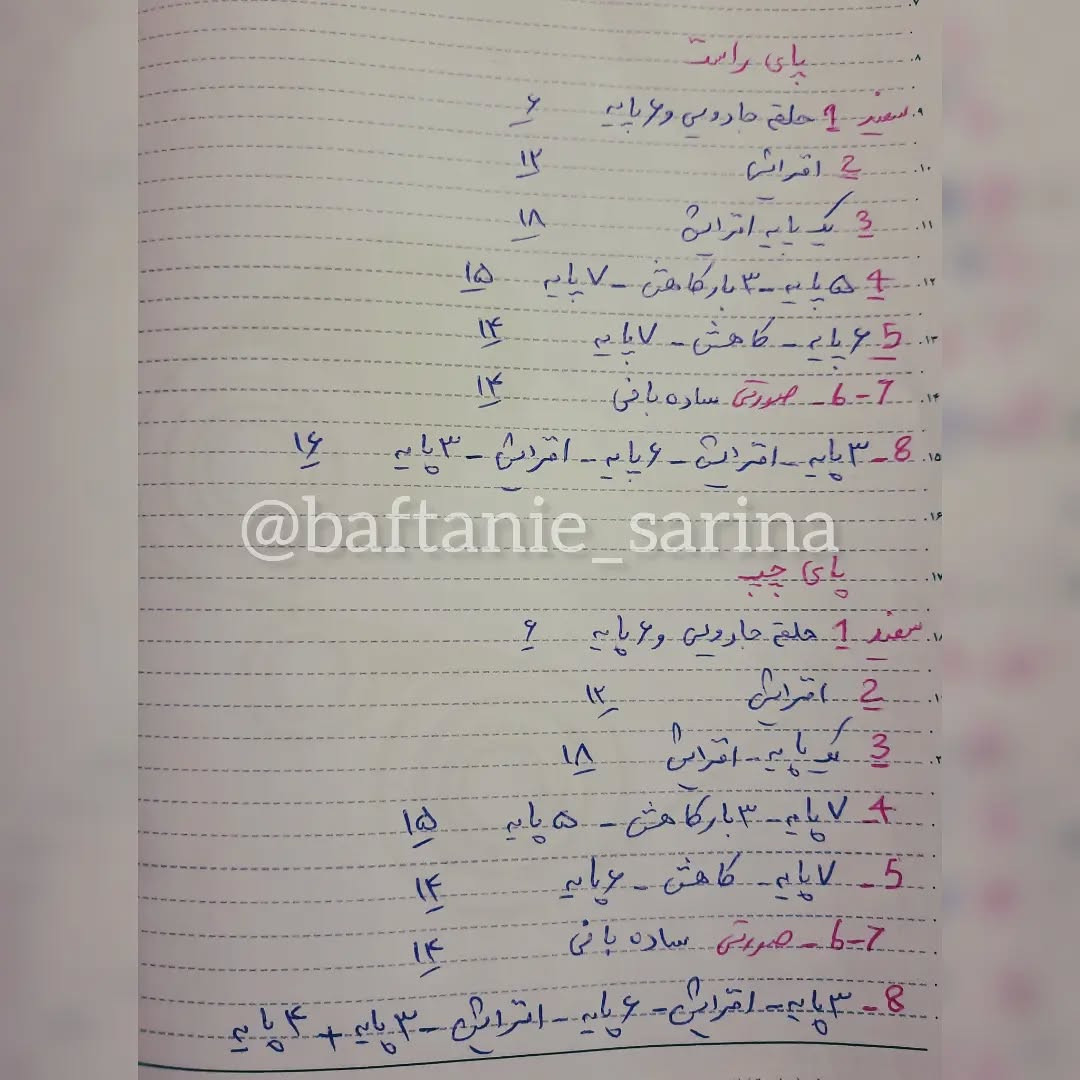 پای راست
سفید 1 حلقه جادویی و ۶ پایه ۶
2 افزایش ۱۲
3 یک پایه افزایش ۱۸
4 ۵ پایه - ۳ بار کاهش - ۷ پایه ۱۵
5 ۶ پایه - کاهش - ۷ پایه ۱۴
6-7 - صورتی ساده بافی ۱۴
8 - ۳ پایه - افزایش - ۶ پایه - افزایش - ۳ پایه ۱۶
@baftanie_sarina
پای چپ
سفید 1 حلقه جادویی و ۶ پایه ۶
2 افزایش ۱۲
3 یک پایه - افزایش ۱۸
4 - ۷ پایه - ۳ بار کاهش - ۵ پایه ۱۵
5 - ۷ پایه - کاهش - ۶ پایه ۱۴
6-7 - صورتی ساده بافی ۱۴
8 - ۳ پایه - افزایش - ۶ پایه - افزایش - ۳ پایه + ۴ پایه